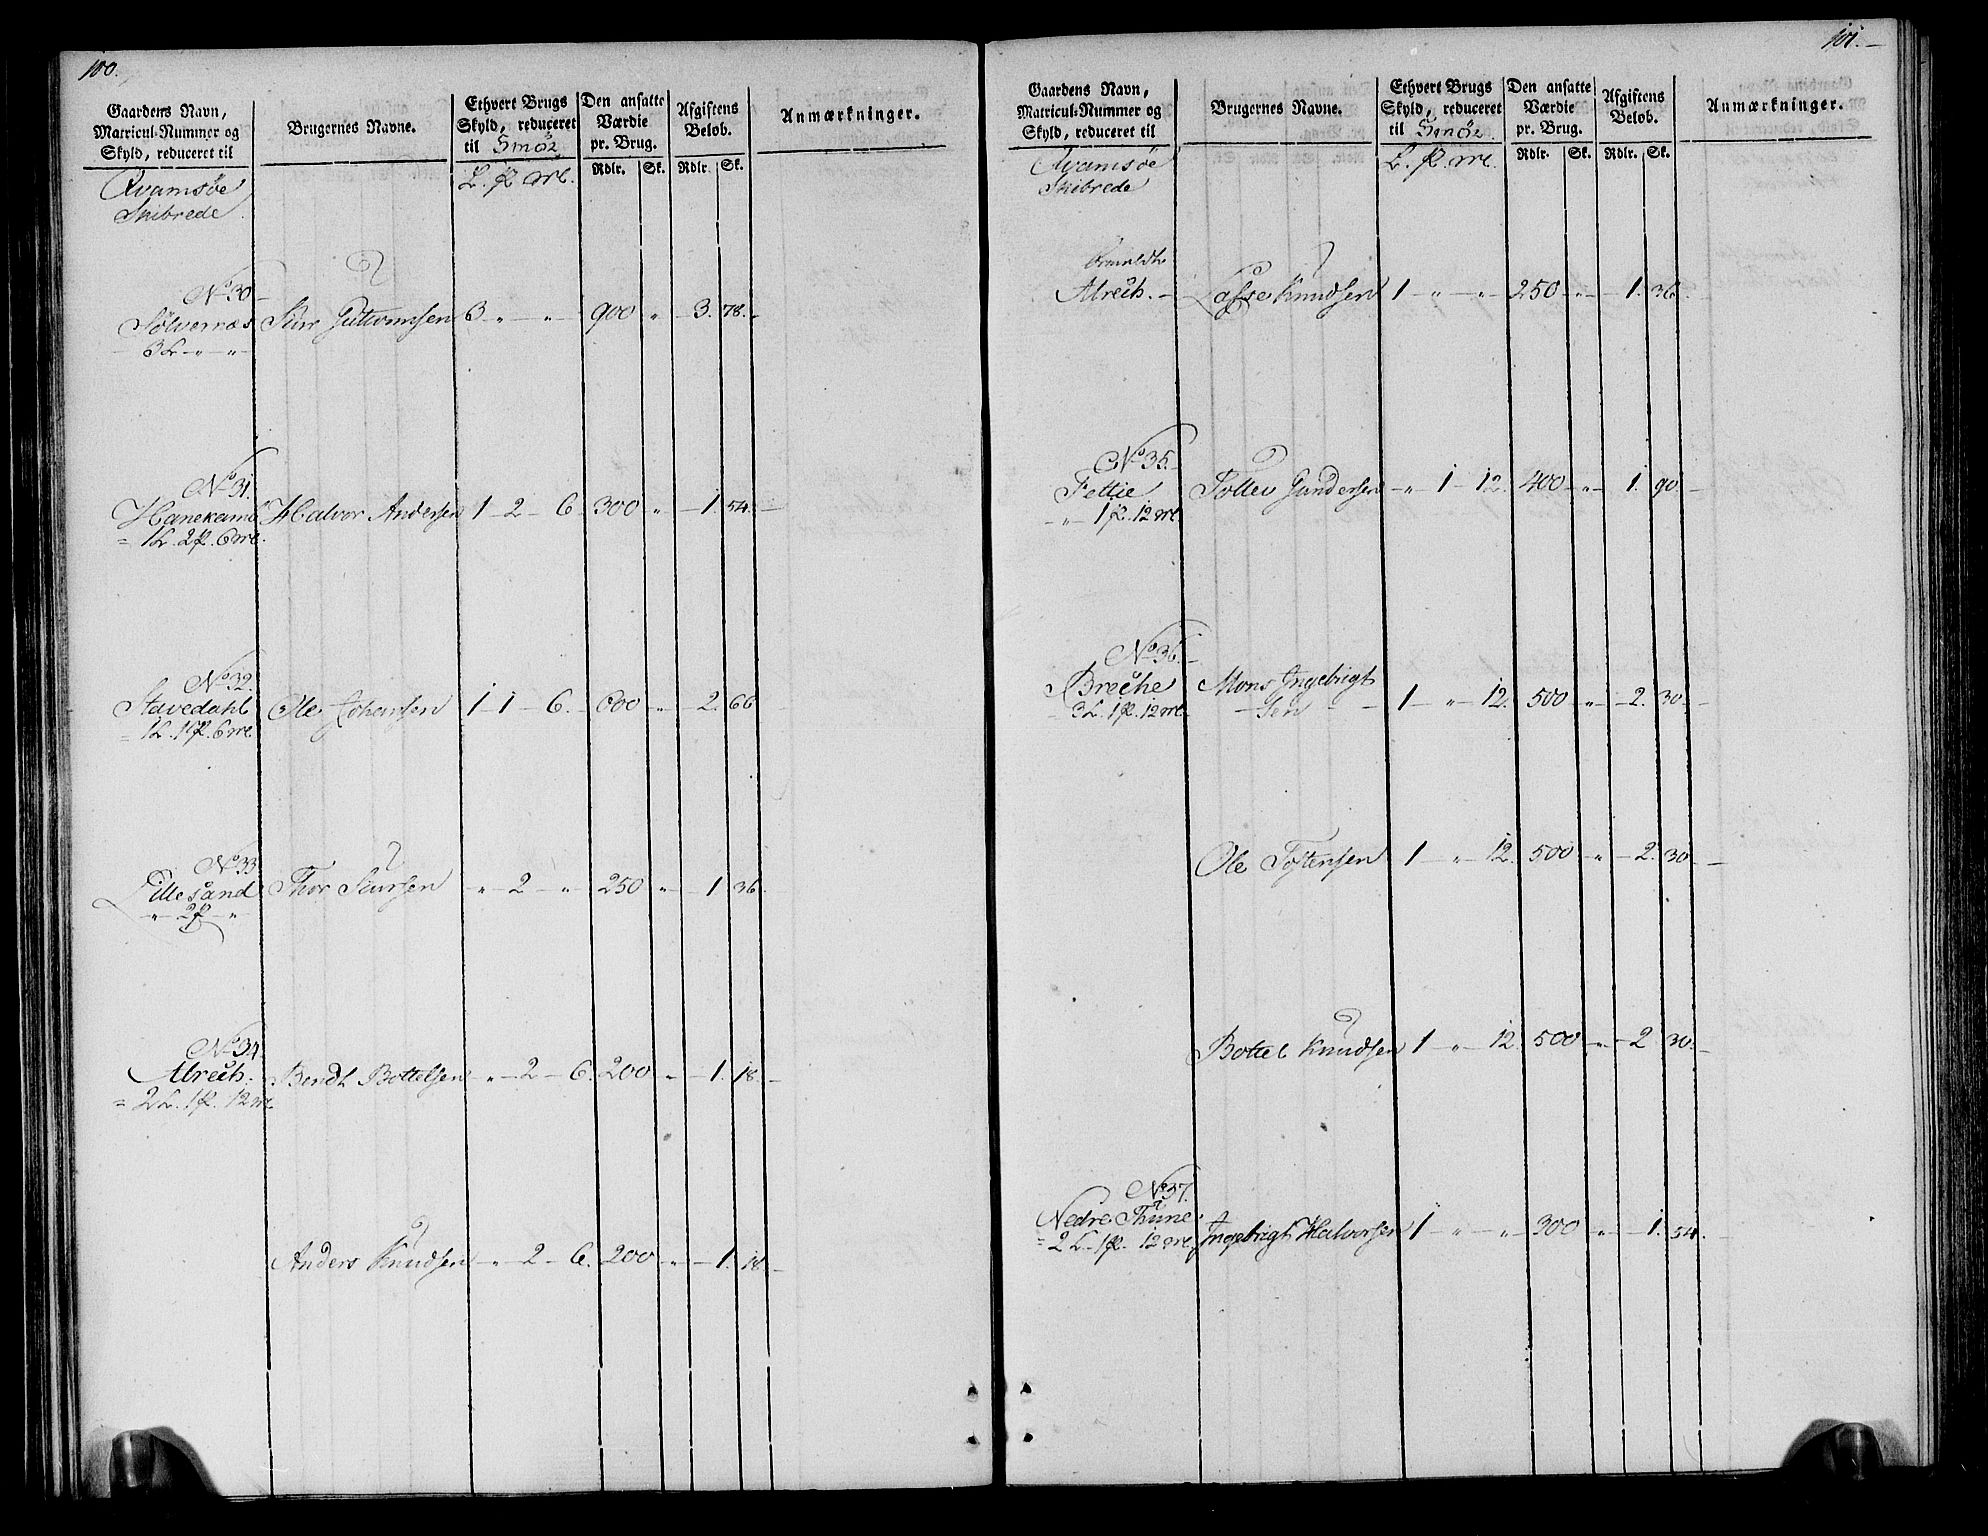 100.
Gaardens Navn, Matricul-Nummer og Skyld, reduceret til
Brugernes Navne.
Ethvert Brugs Skyld, reduceret til Smør
Den ansatte Værdie pr. Brug.
Afgiftens Beløb.
Anmærkninger.
Rdlr. Sk. Rdlr. Sk.
Qvamsøe L. p. ml.
Skibrede
No 30
Sölvernæs Siur Guttormsen 3 " " 900 " 3. 78.
3 L - " - "
No 31.
Hanekamb Halvor Andersen 1 2 6. 300 " 1. 54.
= 1L. 2p. 6ml.
No 32.
Stavedahl Ole Johansen 1 1 6. 600 " 2. 66
= 1L. 1p. 6ml.
No 33
Lillesand Thor Siursen " 2 " 250 " 1. 36.
" 2p "
No 34
Alrech. Bendt Bottelsen " 2 6. 200 " 1. 18.
= 2L. 1p. 12ml.
Anders Knudsen " 2 6. 200 " 1. 18.
101.
Gaardens Navn, Matricul-Nummer og Skyld, reduceret til
Brugernes Navne.
Ethvert Brugs Skyld, reduceret til Smør
Den ansatte Værdie pr. Brug.
Afgiftens Beløb.
Anmærkninger.
Rdlr. Sk. Rdlr. Sk.
Qvamsøe L. p. ml.
Skibrede
Alrech. Lasse Knudsen 1 " " 250 " 1. 36.
No 35.
Fettie Tollev Gundersen " 1 12. 400 " 1. 90.
" 1p. 12ml.
No 36.
Breche Mons Ingebrigt
sen 1 " 12. 500 " 2. 30.
3L. 1p. 12ml.
Ole Tostensen 1 " 12. 500 " 2. 30
Bottel Knudsen 1 " 12. 500 " 2 30.
No 37.
Nedre Thune Ingebrigt Halvorsen 1 " " 300 " 1. 54.
= 2L. 1p. 12ml.